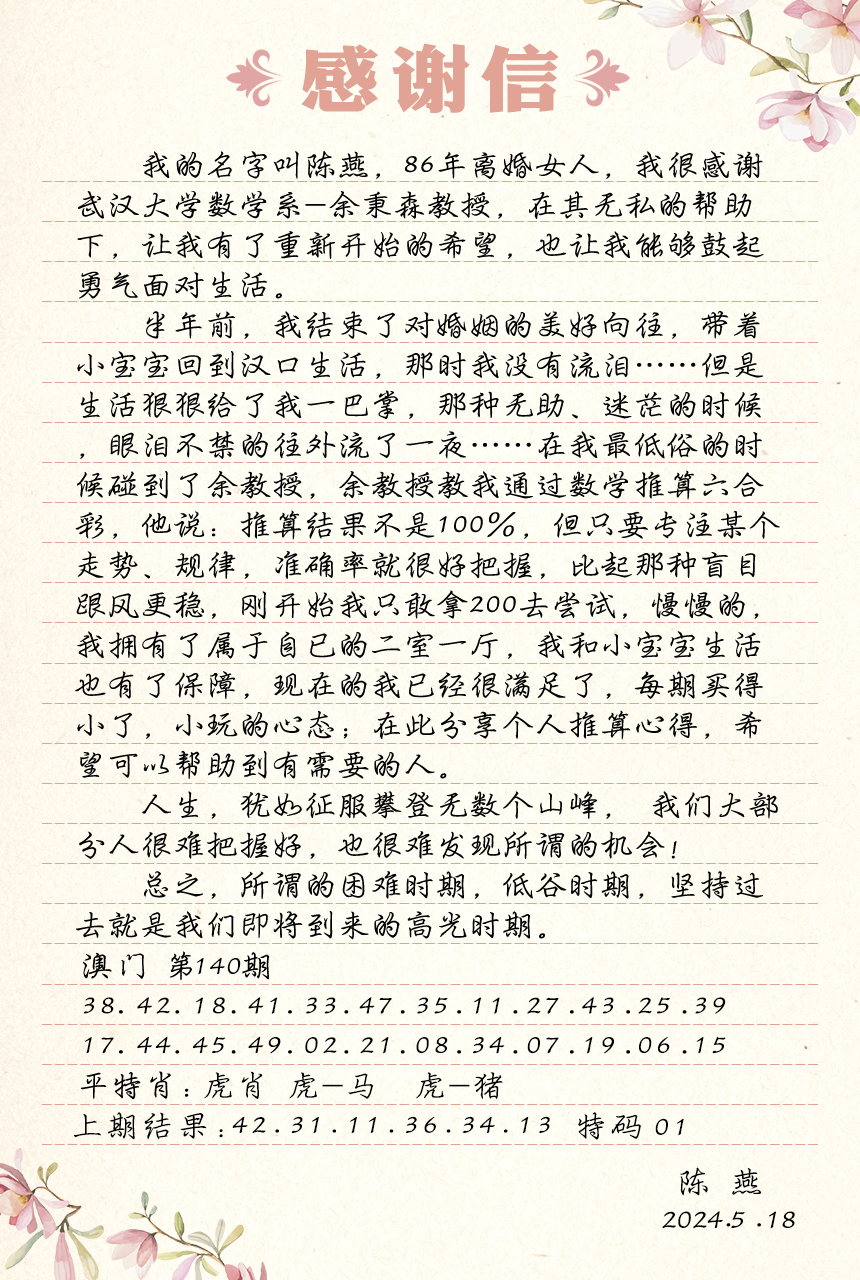 感谢信
我的名字叫陈燕，86年离婚女人，我很感谢
武汉大学数学系—余秉森教授，在其无私的帮助
下，让我有了重新开始的希望，也让我能够鼓起
勇气面对生活。
半年前，我结束了对婚姻的美好向往，带着
小宝宝回到汉口生活，那时我没有流泪……但是
生活狠狠给了我一巴掌，那种无助、迷茫的时候
，眼泪不禁的往外流了一夜……在我最低俗的时
候碰到了余教授，余教授教我通过数学推算六合
彩，他说：推算结果不是100%，但只要专注某个
走势、规律，准确率就很好把握，比起那种盲目
跟风更稳，刚开始我只敢拿200去尝试，慢慢的，
我拥有了属于自已的二室一厅，我和小宝宝生活
也有了保障，现在的我已经很满足了，每期买得
小了，小玩的心态；在此分享个人推算心得，希
望可以帮助到有需要的人。
人生，犹如征服攀登无数个山峰， 我们大部
分人很难把握好，也很难发现所谓的机会！
总之，所谓的困难时期，低谷时期，坚持过
去就是我们即将到来的高光时期。
澳门 第140期
38.42.18.41.33.47.35.11.27.43.25.39
17.44.45.49.02.21.08.34.07.19.06.15
平特肖：虎肖 虎—马 虎—猪
上期结果：42.31.11.36.34.13 特码 01
陈 燕
2024.5.18